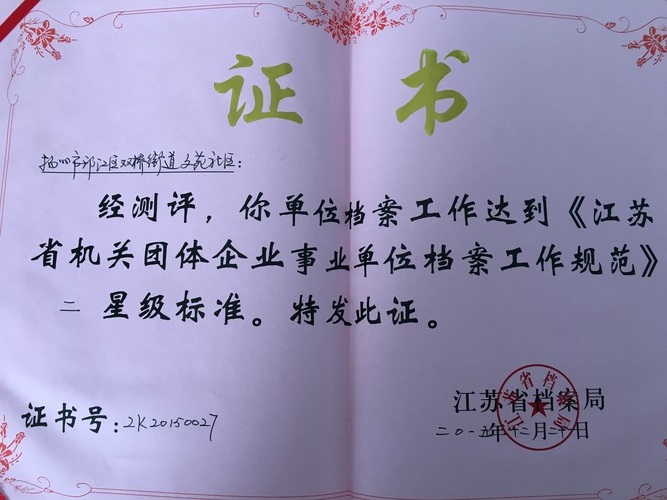 证书
扬州市邗江区双桥街道文苑社区：
经测评，你单位档案工作达到《江苏
省机关团体企业事业单位档案工作规范》
二 星级标准。特发此证。
江苏省档案局
江苏省档案局
证书号：2K20150027
二〇一五年十二月二十日